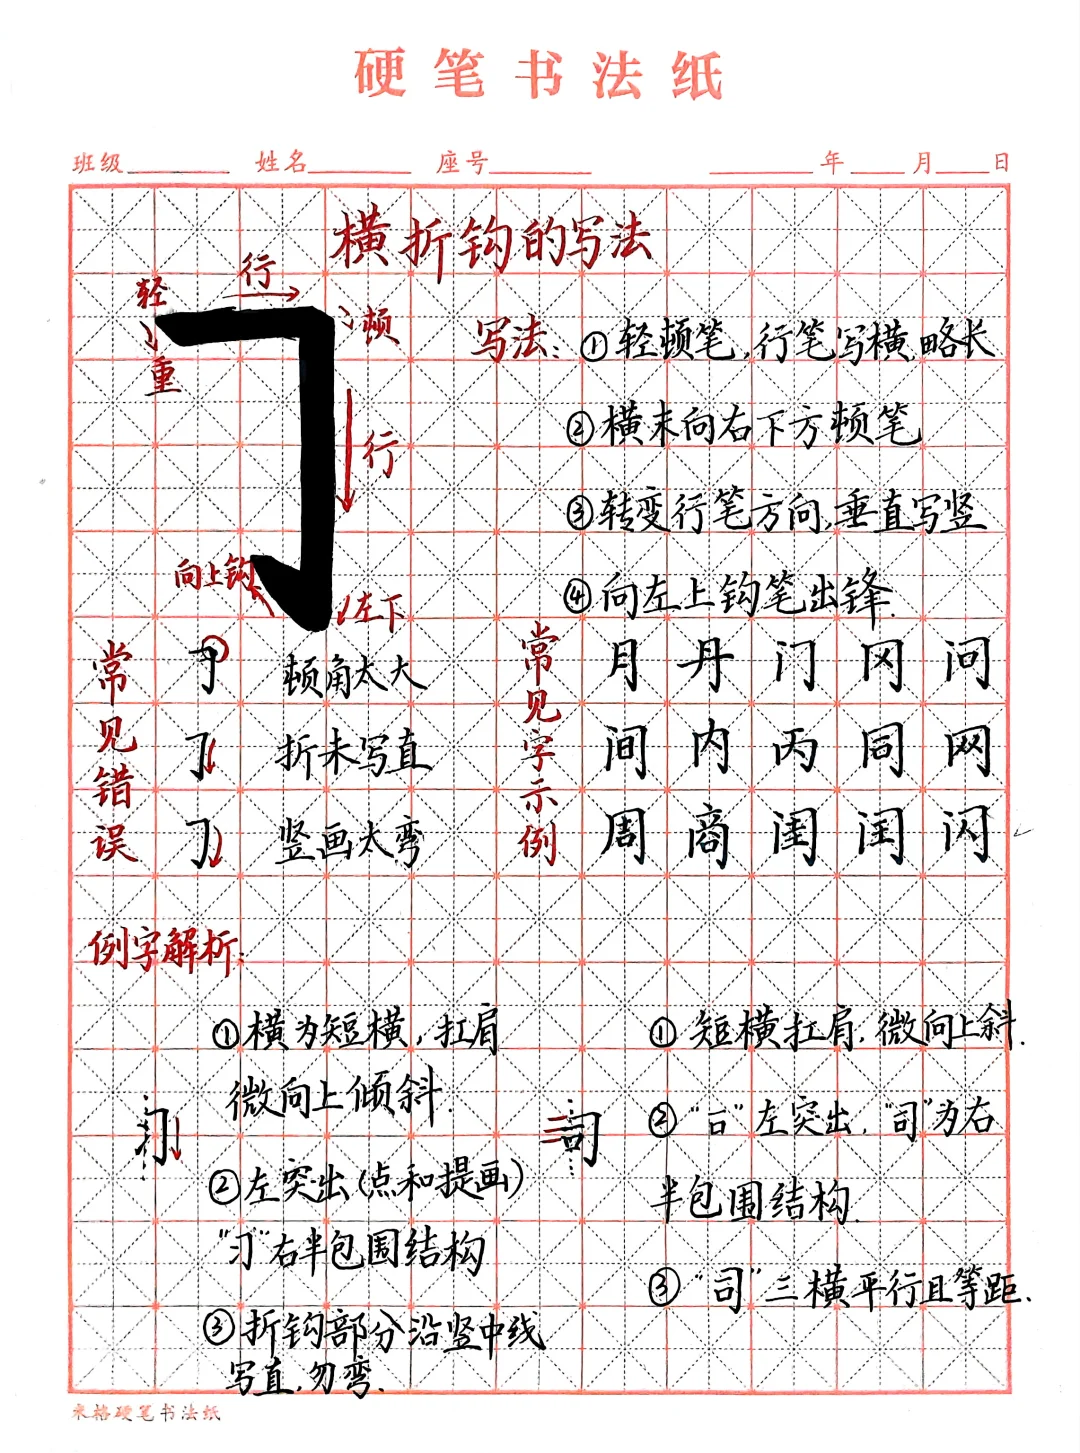 硬笔书法纸
班级 姓名 座号 年 月 日
横折钩的写法
轻
重
行
顿
行
向上钩
左下
写法：①轻顿笔，行笔写横，略长
②横末向右下方顿笔
③转变行笔方向，垂直写竖
④向左上钩笔出锋.
常见错误
顿角太大
折未写直
竖画太弯
常见字示例
月丹门冈问
间内丙同网
周商闺闰闪
例字解析：
习
①横为短横，扛肩
微向上倾斜.
②左突出(点和提画)
“习”右半包围结构
③折钩部分沿竖中线
写直，勿弯.
司
①短横扛肩，微向上斜.
②“𠮛”左突出，“司”为右
半包围结构.
③“司”三横平行且等距.
米格硬笔书法纸